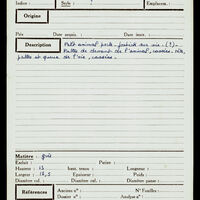 Indice : Série : Emplacem. :
Origine
Prix Date acquis. : Date inscr. :
Description Petit animal
Patte de devant de l'animal, cassée, tête,
pattes et queue de l'oie, cassées.
Matière : grès
Enduit : Patine :
Hauteur : 13 haut. trous : Longueur :
Largeur : 12,5 Epaisseur : Profondeur :
Diamètre col. : Diamètre panse :
Références Ancien n° : N° Feuilles :
Dessin n° : Analyse n° :